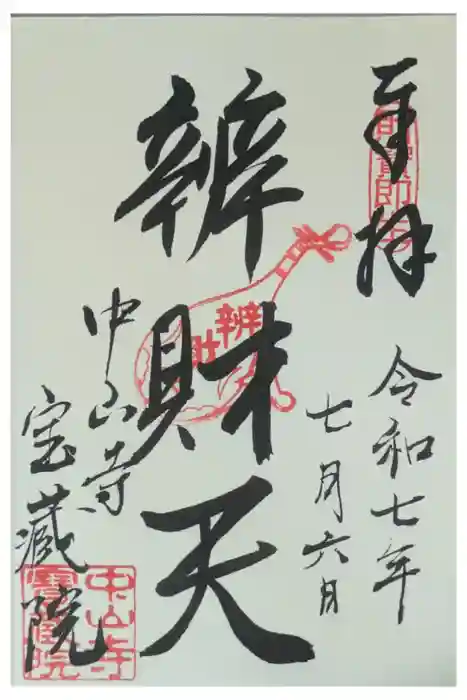 奉拝
令和七年
七月六日
辨財天
辨財
中山寺
宝蔵院
中山寺
寶蔵院